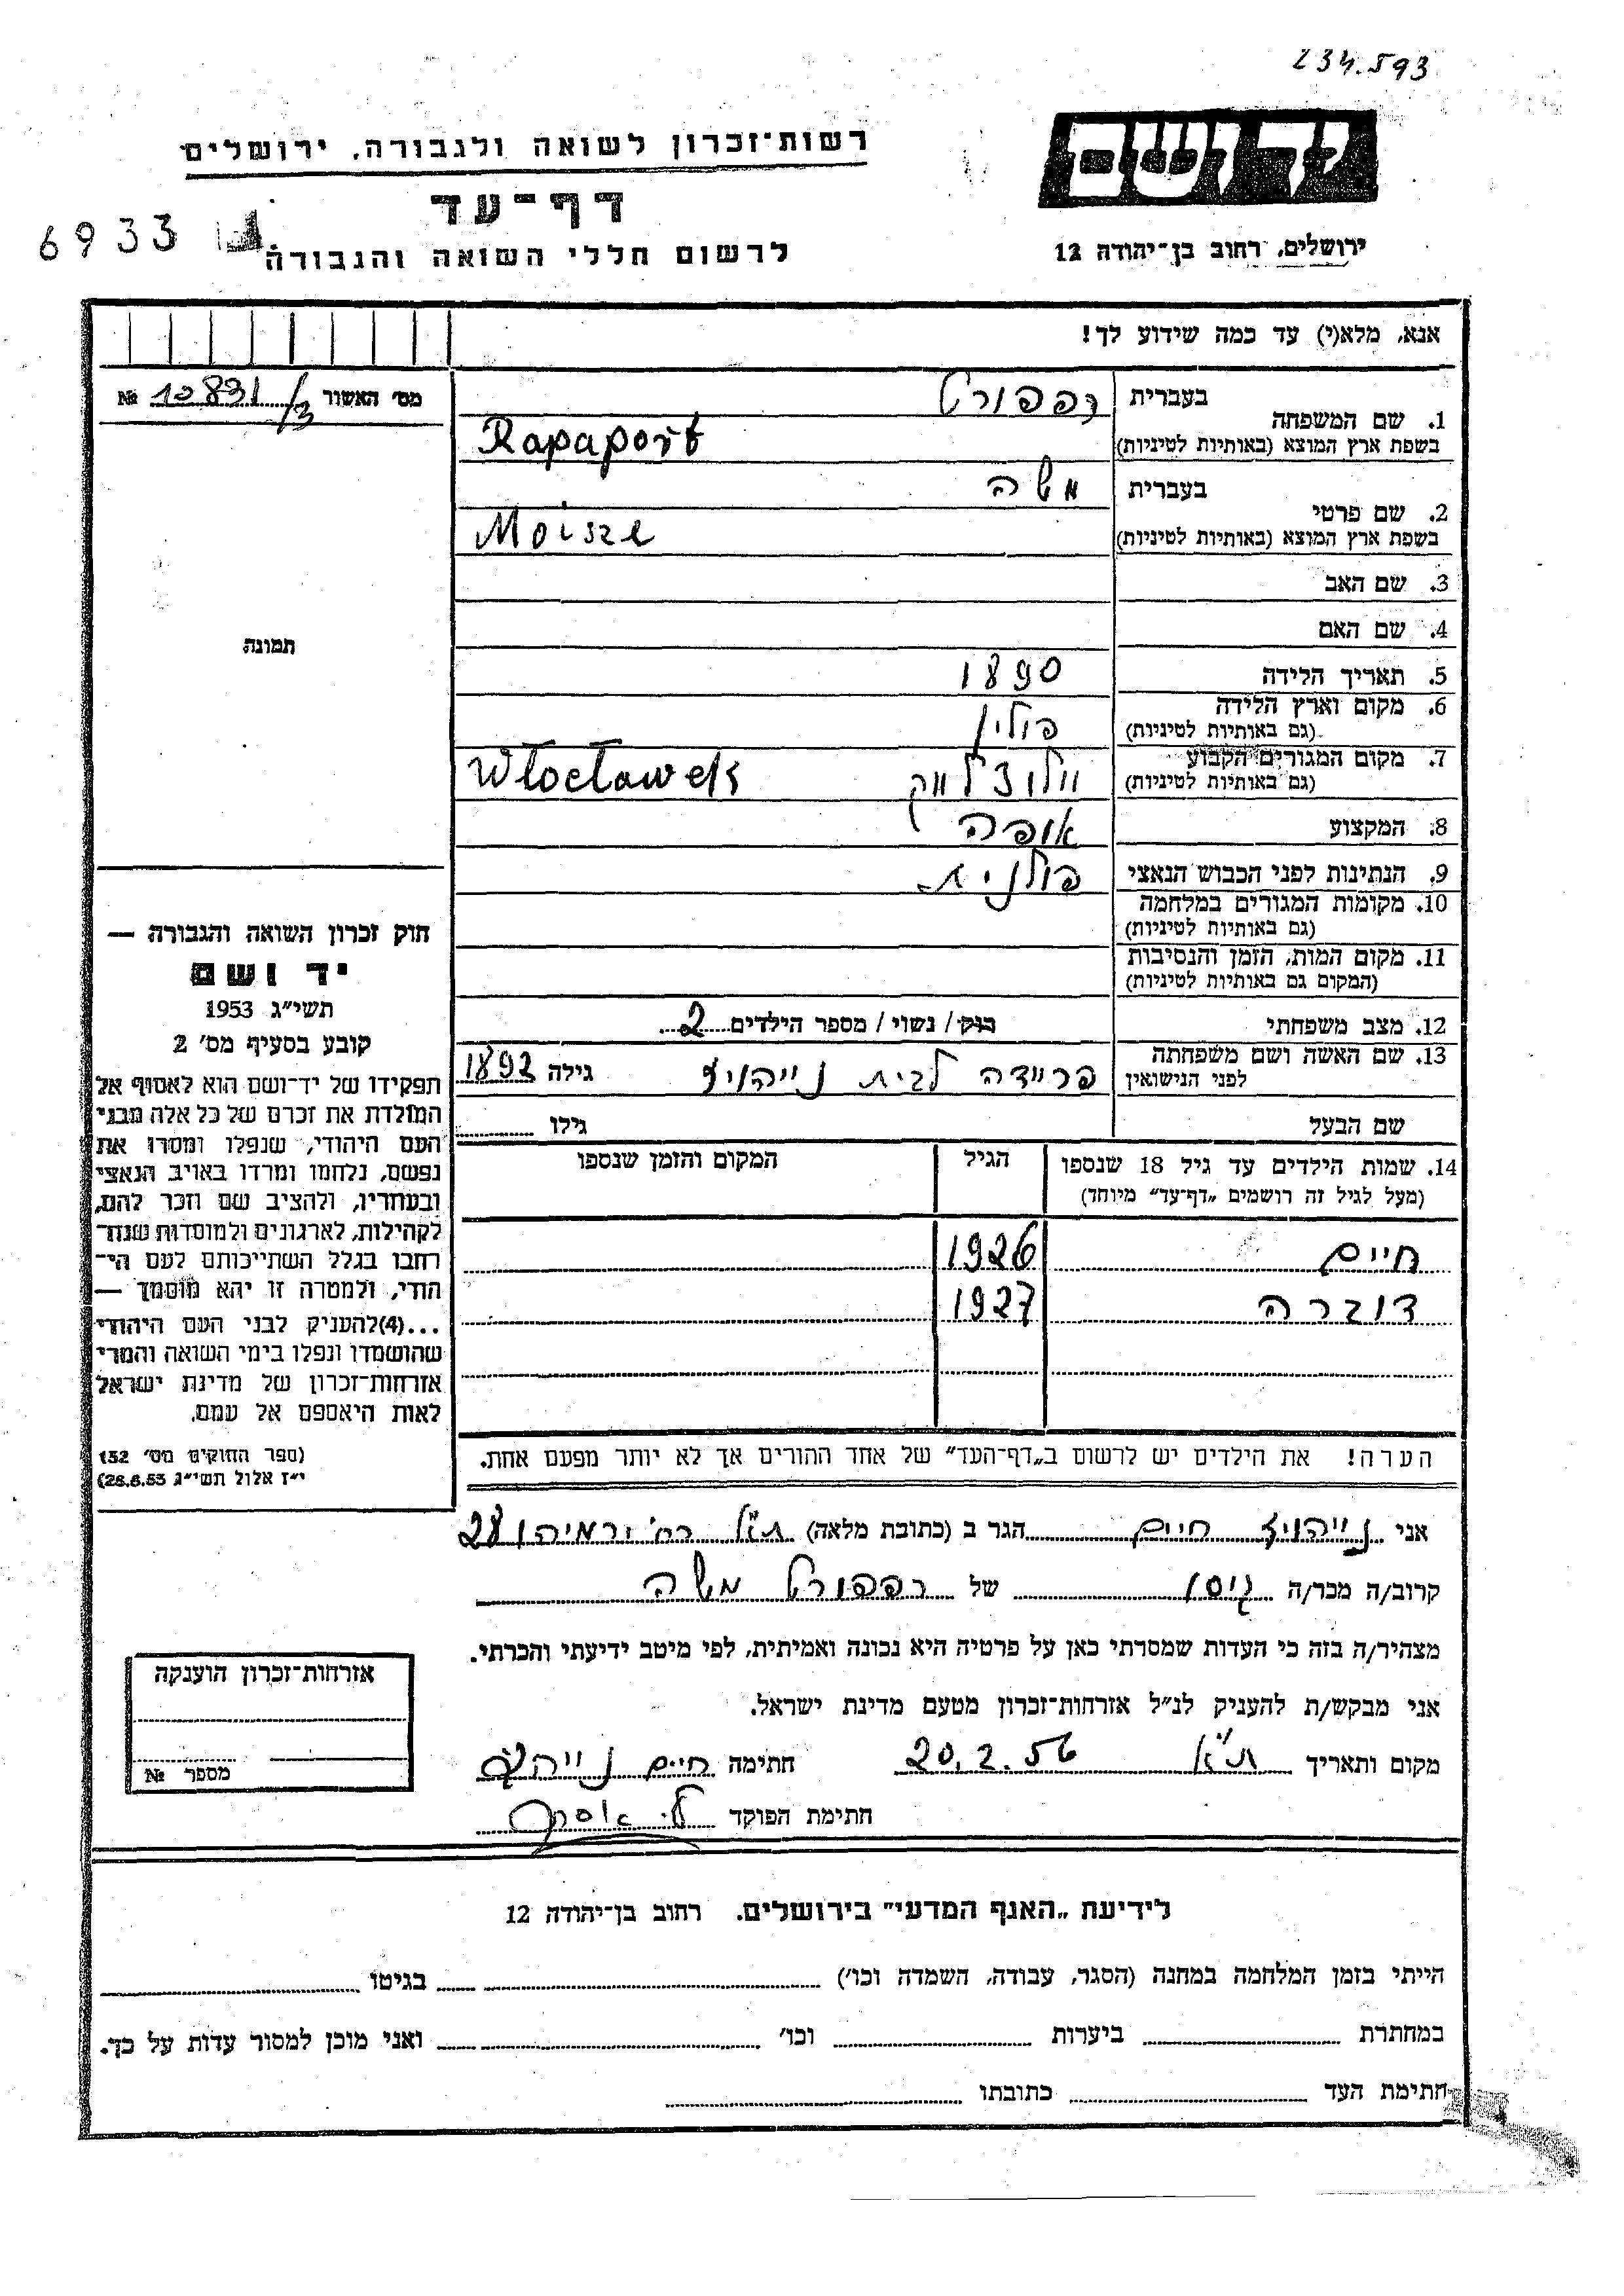 234.593
יד ושם
רשות־זכרון לשואה ולגבורה, ירושלים
דף־עד
6933
לרשום חללי השואה והגבורה
ירושלים, רחוב בן־יהודה 12
אנא, מלא(י) עד כמה שידוע לך!
מס׳ האשור 10831/3 №
1. שם המשפחה
בעברית רפפורט
בשפת ארץ המוצא (באותיות לטיניות) Rapaport
2. שם פרטי
בעברית משה
בשפת ארץ המוצא (באותיות לטיניות) Moisze
3. שם האב
4. שם האם
תמונה
5. תאריך הלידה 1890
6. מקום וארץ הלידה פולין
(גם באותיות לטיניות)
7. מקום המגורים הקבוע וולוצלווק Włocławek
(גם באותיות לטיניות)
8. המקצוע אופה
9. הנתינות לפני הכבוש הנאצי פולנית
10. מקומות המגורים במלחמה
(גם באותיות לטיניות)
11. מקום המות, הזמן והנסיבות
(המקום גם באותיות לטיניות)
12. מצב משפחתי רוק / נשוי / מספר הילדים 2
13. שם האשה ושם משפחתה
לפני הנישואין פריידה לבית גילה 1892
שם הבעל גילו
14. שמות הילדים עד גיל 18 שנספו הגיל המקום והזמן שנספו
(מעל לגיל זה רושמים „דף־עד״ מיוחד)
חיים 1926
דוברה 1927
הערה! את הילדים יש לרשום ב„דף־העד״ של אחד ההורים אך לא יותר מפעם אחת.
חוק זכרון השואה והגבורה —
יד ושם
תשי״ג 1953
קובע בסעיף מס׳ 2
תפקידו של יד־ושם הוא לאסוף אל
המולדת את זכרם של כל אלה מבני
העם היהודי, שנפלו ומסרו את
נפשם, נלחמו ומרדו באויב הנאצי
ובעוזריו, ולהציב שם וזכר להם,
לקהילות, לארגונים ולמוסדות שנח־
רבו בגלל השתייכותם לעם הי־
הודי, ולמטרה זו יהא מוסמך —
...(4)להעניק לבני העם היהודי
שהושמדו ונפלו בימי השואה והמרי
אזרחות־זכרון של מדינת ישראל
לאות היאספם אל עמם.
(ספר החוקים מס׳ 132
י״ז אלול תשי״ג 28.8.53)
אני נייהויז חיים הגר ב (כתובת מלאה) ת״א רח׳ ירמיהו 28
קרוב/ה מכר/ה גיסו של רפפורט משה
מצהיר/ה בזה כי העדות שמסרתי כאן על פרטיה היא נכונה ואמיתית, לפי מיטב ידיעתי והכרתי.
אני מבקש/ת להעניק לנ״ל אזרחות־זכרון מטעם מדינת ישראל.
מקום ותאריך ת״א 20.2.56 חתימה חיים
חתימת הפוקד
אזרחות־זכרון הוענקה
מספר №
לידיעת „האגף המדעי״ בירושלים, רחוב בן־יהודה 12
הייתי בזמן המלחמה במחנה (הסגר, עבודה, השמדה וכו׳) בגיטו
במחתרת ביערות וכו׳ ואני מוכן למסור עדות על כך.
חתימת העד כתובתו